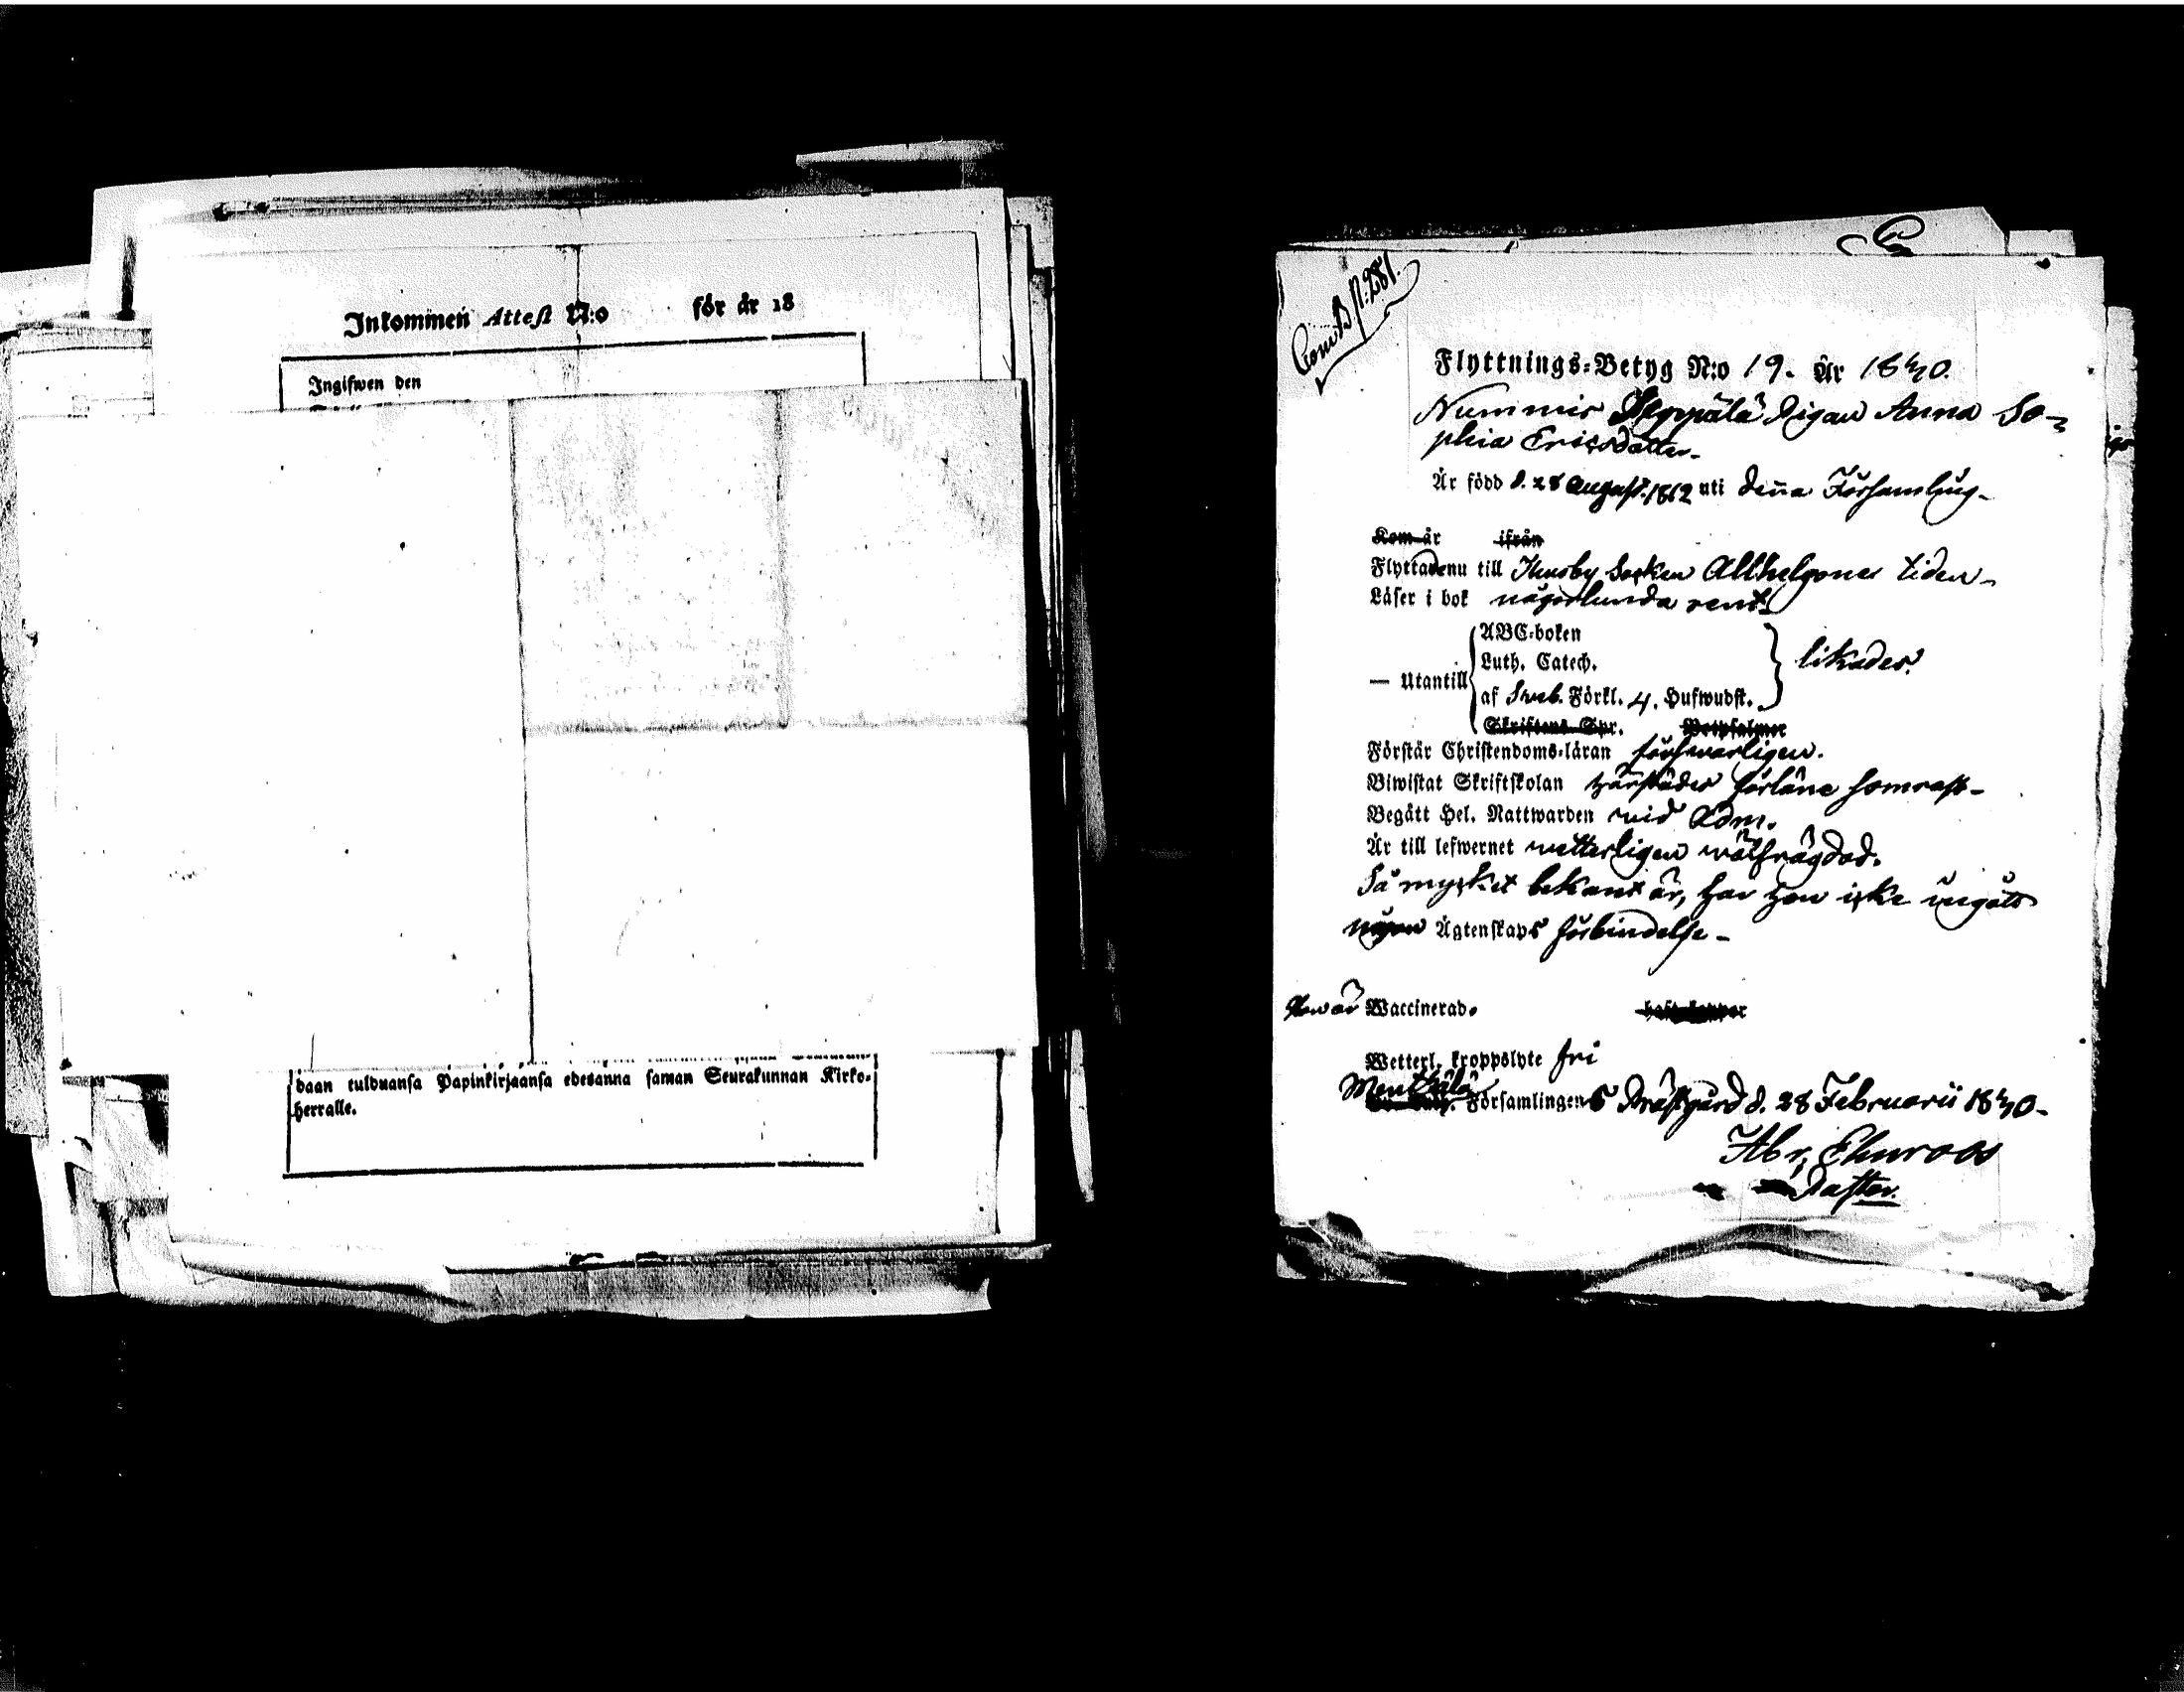 Inkommen Attest N:o för år 18
Ingifwen den
daan tulduansa Papinkirjaansa edesänna saman Seurakunnan Kirko-
herralle.
Com.B. N:281.
Flyttnings-Betyg N:o 19. År 1840.
Nummis Seppälä Pigan Anna So-
phia Ericsdotter.
Är född d. 28 August. 1812 uti denna Församling.
Kom år ifrån
Flyttade nu till Thusby Socken Allhelgone tiden.
Läser i bok någorlunda rent
ABC-boken
Luth. Catech. likaded.
— Utantill
af Sveb. Förkl. 4. Hufwudst.
Skriftens Spr. Botpsalmer
Förstår Christendoms-läran försvarligen.
Biwistat Skriftskolan härstädes
Begått Hel. Nattwarden vid Adm.
Är till lefwernet vetterligen välfrägdad.
Så mycket bekant är, har hon icke ingått
någon Ägtenskaps förbindelse.
Hon är Waccinerad.
Wetterl. kroppslyte fri
Mentsälä Församlingens Prästgård d. 28 Februarii 1840.
Abr. Ehnroos
Pastor.